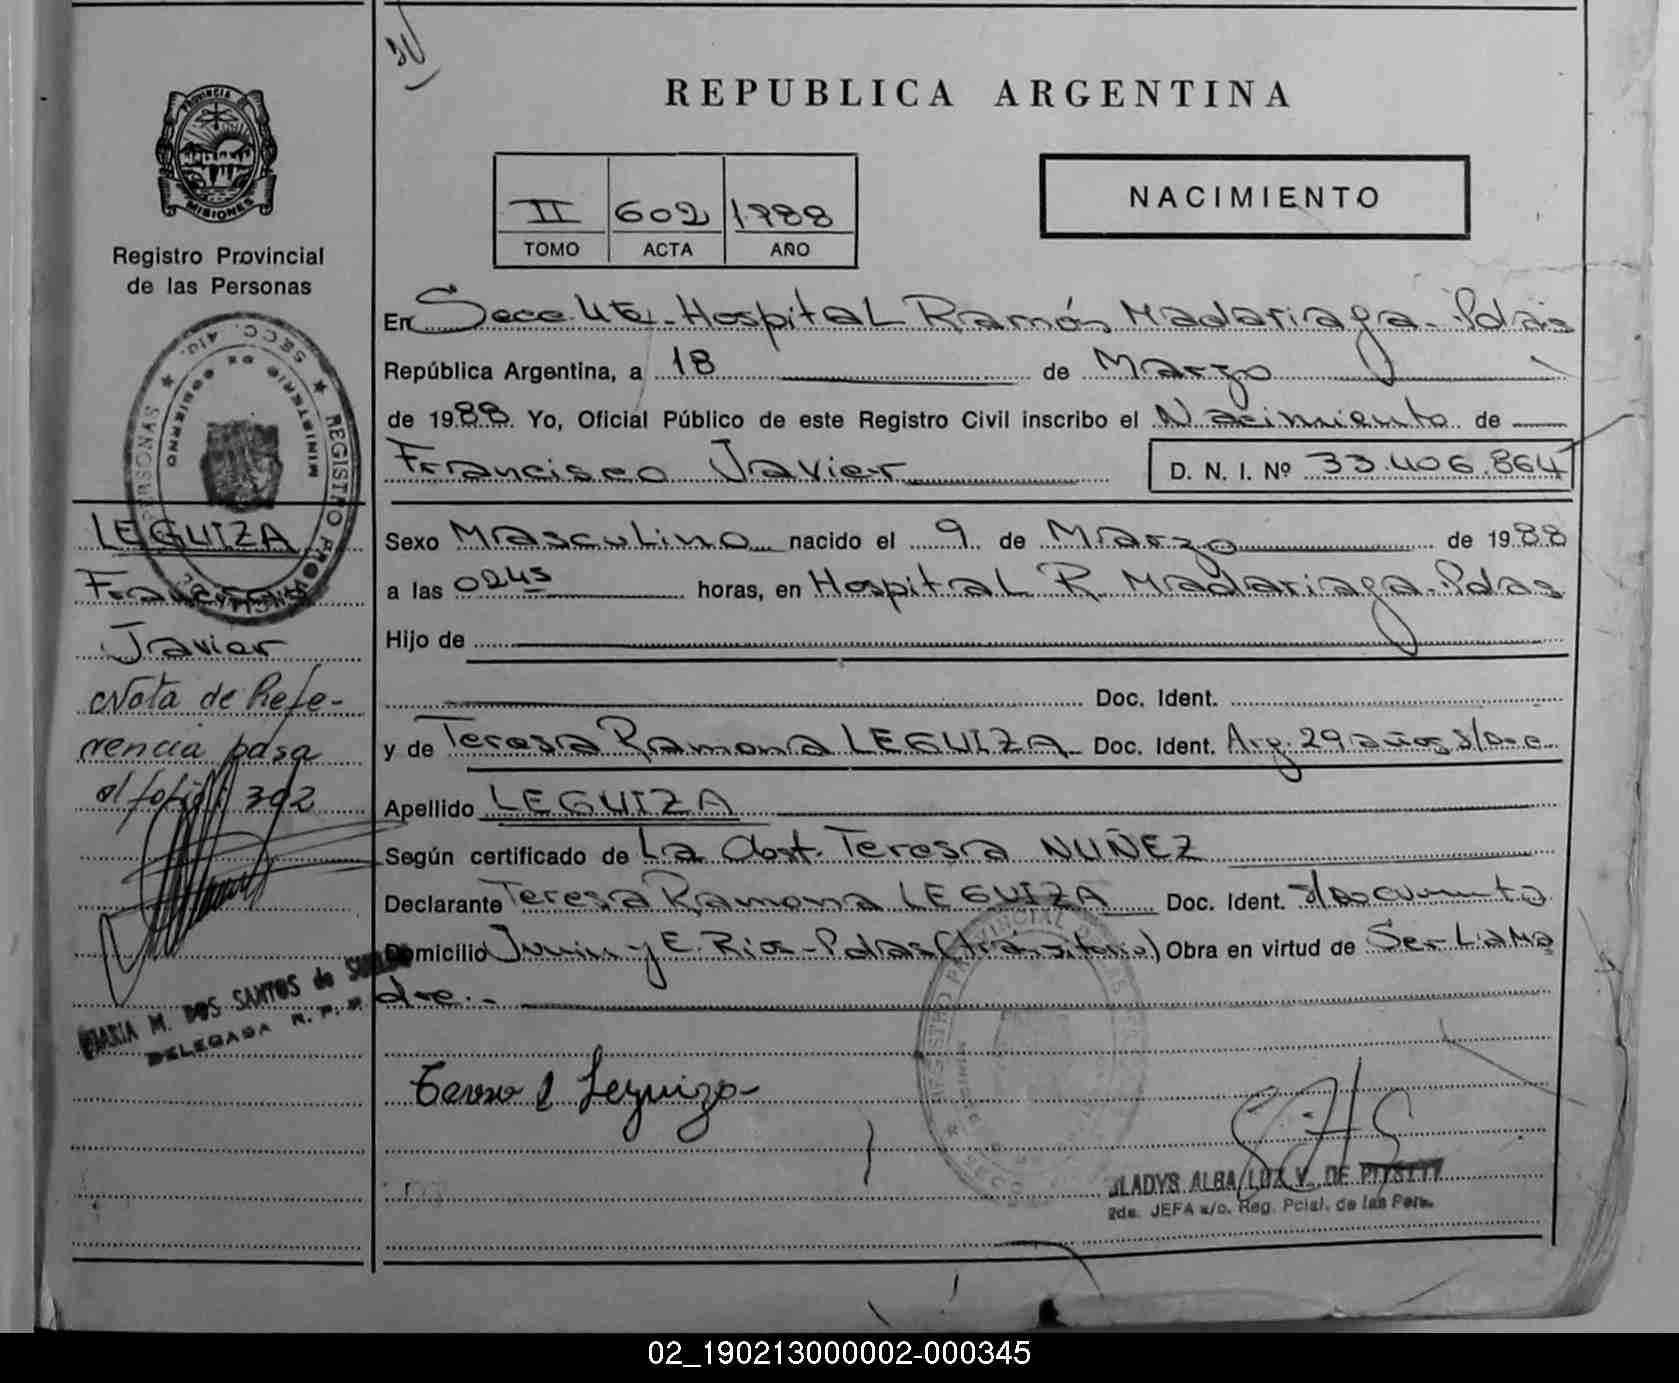 PROVINCIA DE
MISIONES
Registro Provincial
de las Personas
REPUBLICA ARGENTINA
II 602 1988
TOMO ACTA AÑO
NACIMIENTO
En Secc. 4ta - Hospital Ramón Madariaga - Pdas
República Argentina, a 18 de Marzo
de 1988. Yo, Oficial Público de este Registro Civil inscribo el Nacimiento de
Francisco Javier D. N. I. Nº 33.406.864
Sexo Masculino nacido el 9 de Marzo de 1988
a las 0245 horas, en Hospital R. Madariaga - Pdas
Hijo de
Doc. Ident.
y de Teresa Ramona LEGUIZA Doc. Ident. Arg. 29 años s/Doc.
Apellido LEGUIZA
Según certificado de La Obst. Teresa NUÑEZ
Declarante Teresa Ramona LEGUIZA Doc. Ident. s/Documento
Domicilio Junin y E. Rios - Pdas (transitorio) Obra en virtud de Ser La Ma
dre.-
LEGUIZA
Francisco
Javier
Nota de Refe-
rencia pasa
al folio 302
MARIA M. DOS SANTOS de
DELEGADA R. P. P.
GLADYS ALBA LUZ V. DE
2da. JEFA a/c. Reg. Pcial. de las Pers.
02_190213000002-000345